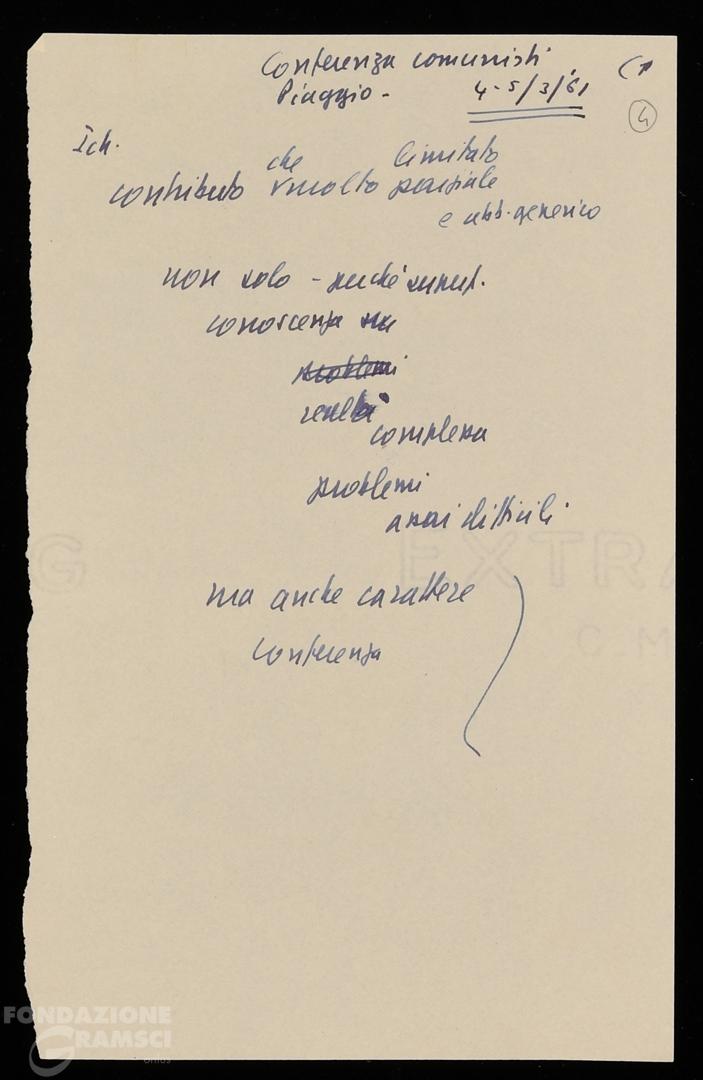 Conferenza comunisti
Piaggio - 4-5/3/'61
4
Sch.
che limitato
contributo molto parziale
e abb. generico
non solo - perché
conoscenza su
problemi
realtà
complessa
problemi
assai difficili
ma anche carattere
conferenza
G EXTRA
C.M
FONDAZIONE
GRAMSCI
onlus